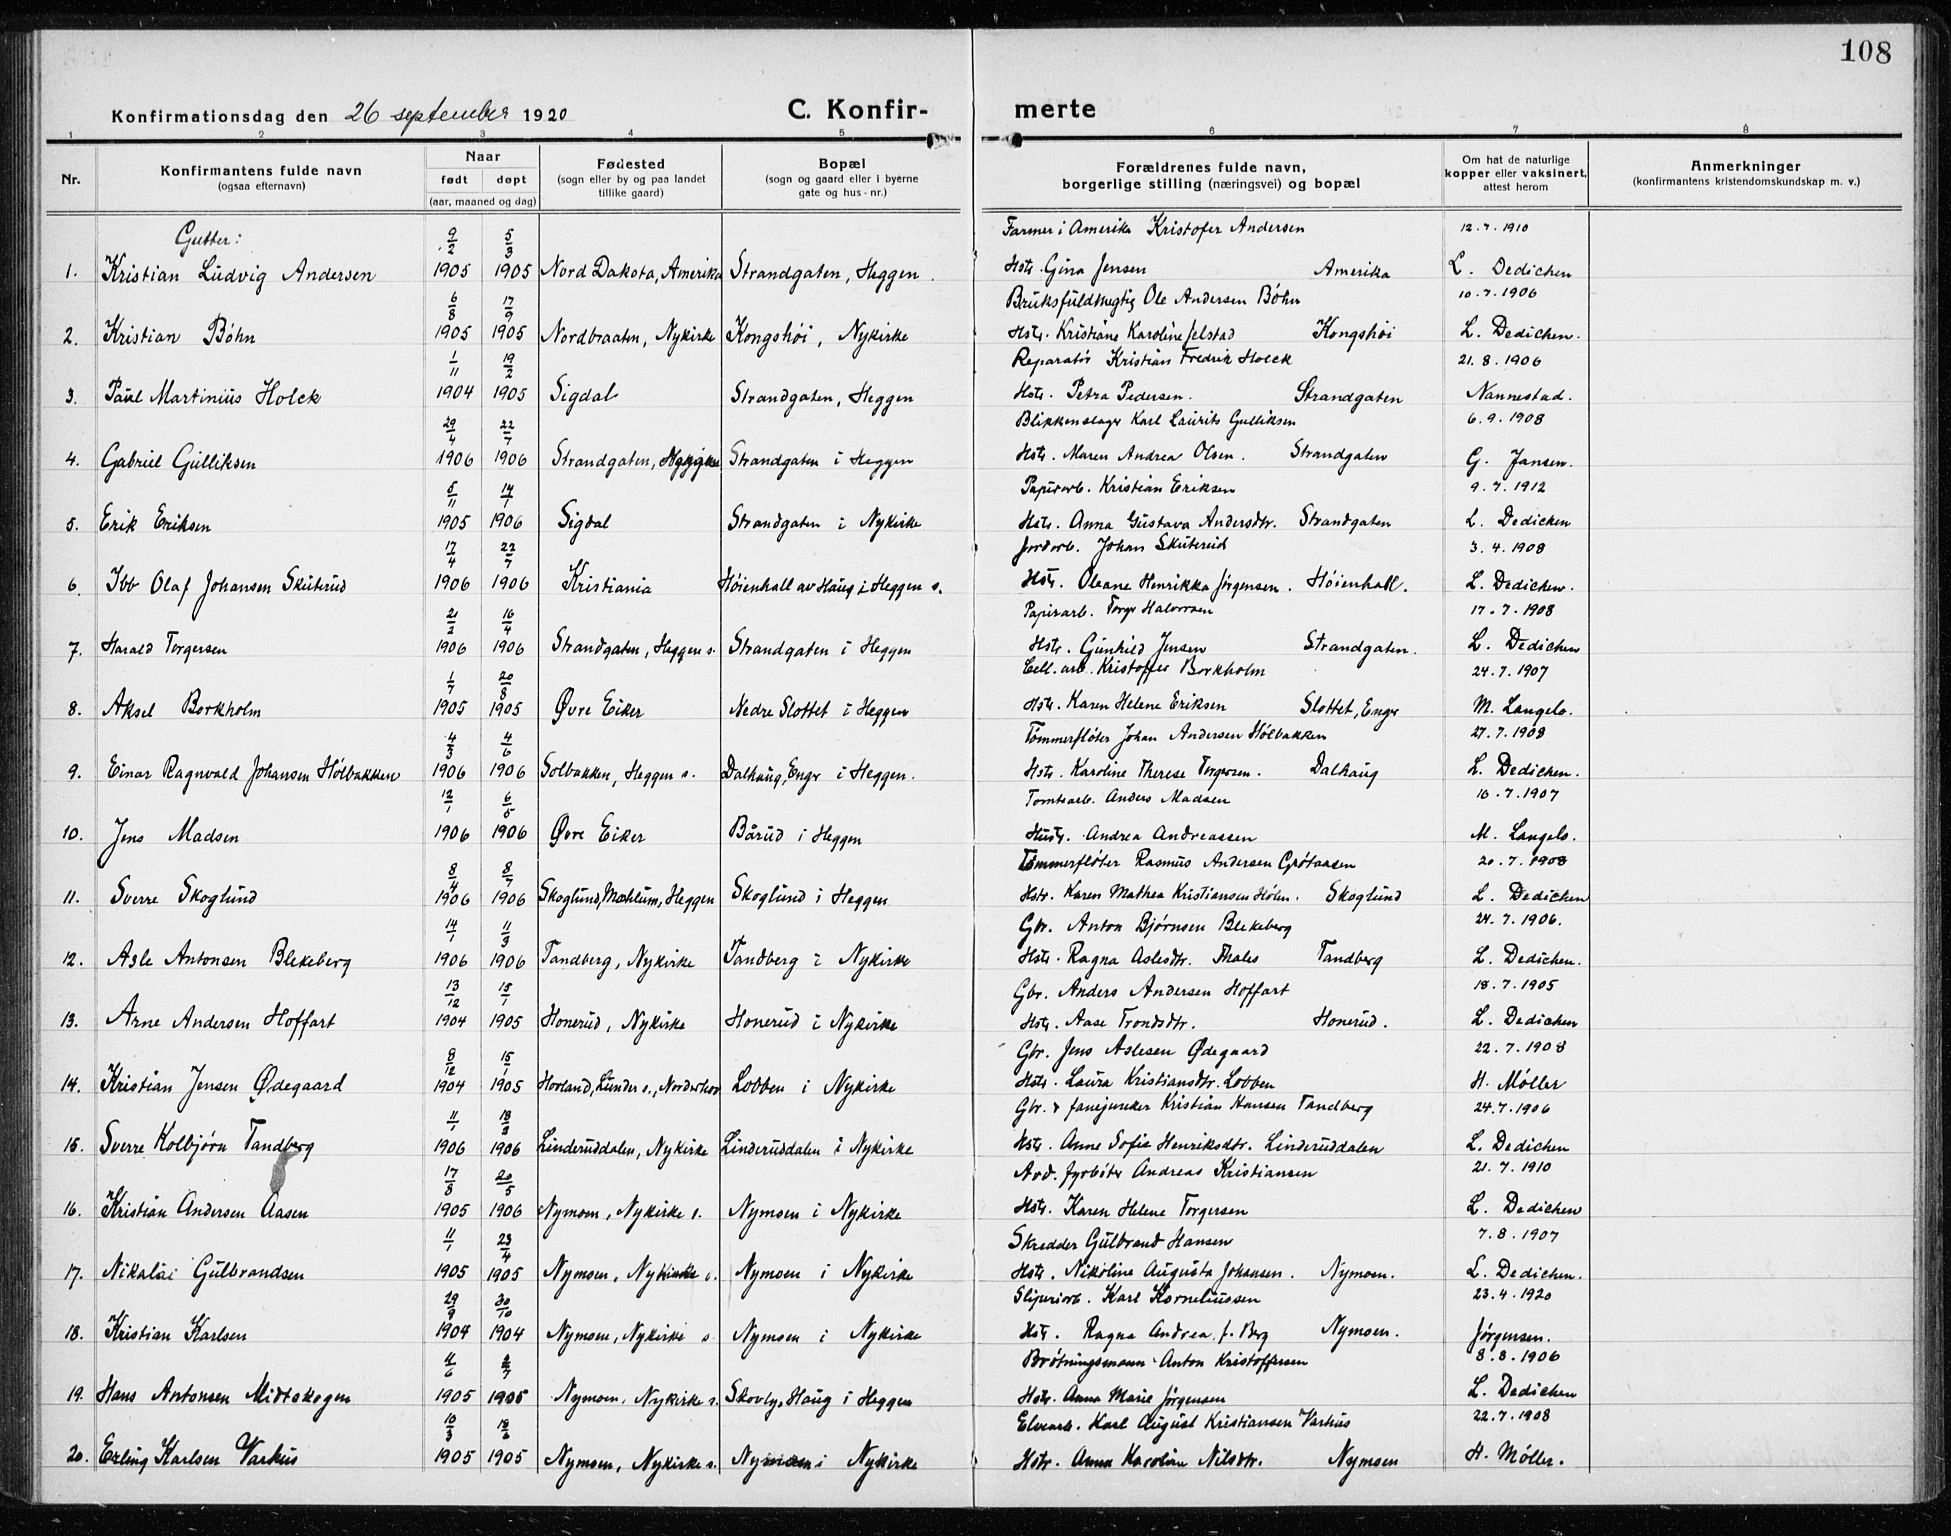 108
Konfirmationsdag den 26 september 1920 C. Konfirmerte
1 2 3 4 5 6 7 8
Nr. Konfirmantens fulde navn (ogsaa efternavn) Naar født døpt (aar, maaned og dag) Fødested (sogn eller by og paa landet tillike gaard) Bopæl (sogn og gaard eller i byerne gate og hus-nr.) Forældrenes fulde navn, borgerlige stilling (næringsvei) og bopæl Om hat de naturlige kopper eller vaksinert, attest herom Anmerkninger (konfirmantens kristendomskundskap m. v.)
Gutter: 9/2 5/3 Farmer i Amerika Kristofer Andersen 12.7.1910
1. Kristian Ludvig Andersen 1905 1905 Nord Dakota, Amerika Strandgaten, Heggen. Hstr. Gina Jensen Amerika L. Dedichen
6/8 17/9 Bruksfuldmegtig Ole Andersen Bøhn 10.7.1906
2. Kristian Bøhn 1905 1905 Nordbraaten, Nykirke Kongshøi, Nykirke Hstr. Kristiane Karoline Jelstad Kongshøi L. Dedichen.
1/11 19/2 Reparatør Kristian Fredrik Holck 21.8.1906
3. Paul Martinius Holck 1904 1905 Sigdal Strandgaten, Heggen Hstr. Petra Pedersen. Strandgaten Nannestad.
29/4 22/7 Blikkenslager Karl Laurits Gulliksen 6.9.1908
4. Gabriel Gulliksen 1906 1906 Strandgaten, Strandgaten i Heggen Hstr. Maren Andrea Olsen. Strandgaten G. Jansen.
5/11 14/1 Papirarb. Kristian Eriksen 9.7.1912
5. Erik Eriksen 1905 1906 Sigdal Strandgaten i Nykirke Hstr. Anna Gustava Andersdtr. Strandgaten L. Dedichen
17/4 22/7 Jordarb. Johan Skuterud 3.4.1908
6. Ibb Olaf Johansen Skuterud 1906 1906 Kristiania Høienhall av Haug i Heggen s. Hstr. Oleane Henrikka Jørgensen. Høienhall. L. Dedichen.
21/2 16/4 Papirarb. Torger Halvorsen 17.7.1908
7. Harald Torgersen 1906 1906 Strandgaten, Heggen s. Strandgaten i Heggen Hstr. Gunhild Jensen Strandgaten. L. Dedichen
1/7 20/8 Cell. arb. Kristoffer Borkholm 24.7.1907
8. Aksel Borkholm 1905 1905 Øvre Eiker Nedre Slottet i Heggen Hstr. Karen Helene Eriksen Slottet, Enger M. Langelo.
4/3 4/6 Tømmerfløter Johan Andersen Hólbakken 27.7.1908
9. Einar Ragnvald Johansen Hólbakken 1906 1906 Solbakken, Heggen s. Dalhaug, Enger i Heggen. Hstr. Karoline Therese Torgersen. Dalhaug L. Dedichen.
12/1 6/5 Tomtearb. Anders Madsen 16.7.1907
10. Jens Madsen 1906 1906 Øvre Eiker Bårud i Heggen Hustr. Andrea Andreassen M. Langelo.
8/4 8/7 Tømmerfløter Rasmus Andersen Grøtaasen 20.7.1908
11. Sverre Skoglund 1906 1906 Skoglund, Mæhlum, Heggen Skoglund i Heggen Hstr. Karen Mathea Kristiansen Holm. Skoglund L. Dedichen
14/1 11/3 Gbr. Anton Bjørnsen Blekeberg 24.7.1906.
12. Asle Antonsen Blekeberg 1906 1906 Tandberg, Nykirke Tandberg i Nykirke Hstr. Ragna Aslesdtr. Thales Tandberg L. Dedichen.
13/12 15/1 Gbr. Anders Andersen Hoffart 18.7.1905
13. Arne Andersen Hoffart 1904 1905 Honerud, Nykirke Honerud i Nykirke Hstr. Aase Trondsdtr. Honerud. L. Dedichen
8/12 15/1 Gbr. Jens Aslesen Ødegaard 22.7.1908
14. Kristian Jensen Ødegaard 1904 1905 Hovland, Lunder s., Norderhov Lobben i Nykirke Hstr. Laura Kristiansdtr. Lobben H. Møller
11/1 18/2 Gbr. & fanejunker Kristian Hansen Tandberg 24.7.1906
15. Sverre Kolbjørn Tandberg 1906 1906 Linderuddalen, Nykirke Linderuddalen i Nykirke Hstr. Anne Sofie Henriksdtr. Linderuddalen L. Dedichen
17/8 20/5 Avd. fyrbøter Andreas Kristiansen 21.7.1910
16. Kristian Andersen Aasen 1905 1906 Nymoen, Nykirke s. Nymoen i Nykirke Hstr. Karen Helene Torgersen L. Dedichen
11/1 23/4 Skredder Gulbrand Hansen 7.8.1907
17. Nikolai Gulbrandsen 1905 1905 Nymoen, Nykirke s. Nymoen i Nykirke Hstr. Nikoline Augusta Johansen. Nymoen. L. Dedichen.
29/9 30/10 Sliperiarb. Karl Korneliussen 23.4.1920
18. Kristian Karlsen 1904 1904 Nymoen, Nykirke s. Nymoen i Nykirke Hstr. Ragna Andrea f. Berg Nymoen. Jørgensen.
11/6 /7 Brøtningsmann Anton Kristoffersen 8.8.1906
19. Hans Antonsen Midtskogen 1905 1905 Nymoen, Nykirke s. Skovly, Haug i Heggen Hstr. Anna Marie Jørgensen L. Dedichen
10/3 18/6 Elvearb. Karl August Kristiansen Varhus 22.7.1908
20. Erling Karlsen Varhus 1905 1905 Nymoen, Nykirke s. Nymoen i Nykirke Hstr. Anna Karoline Nilsdtr. Nymoen H. Møller.